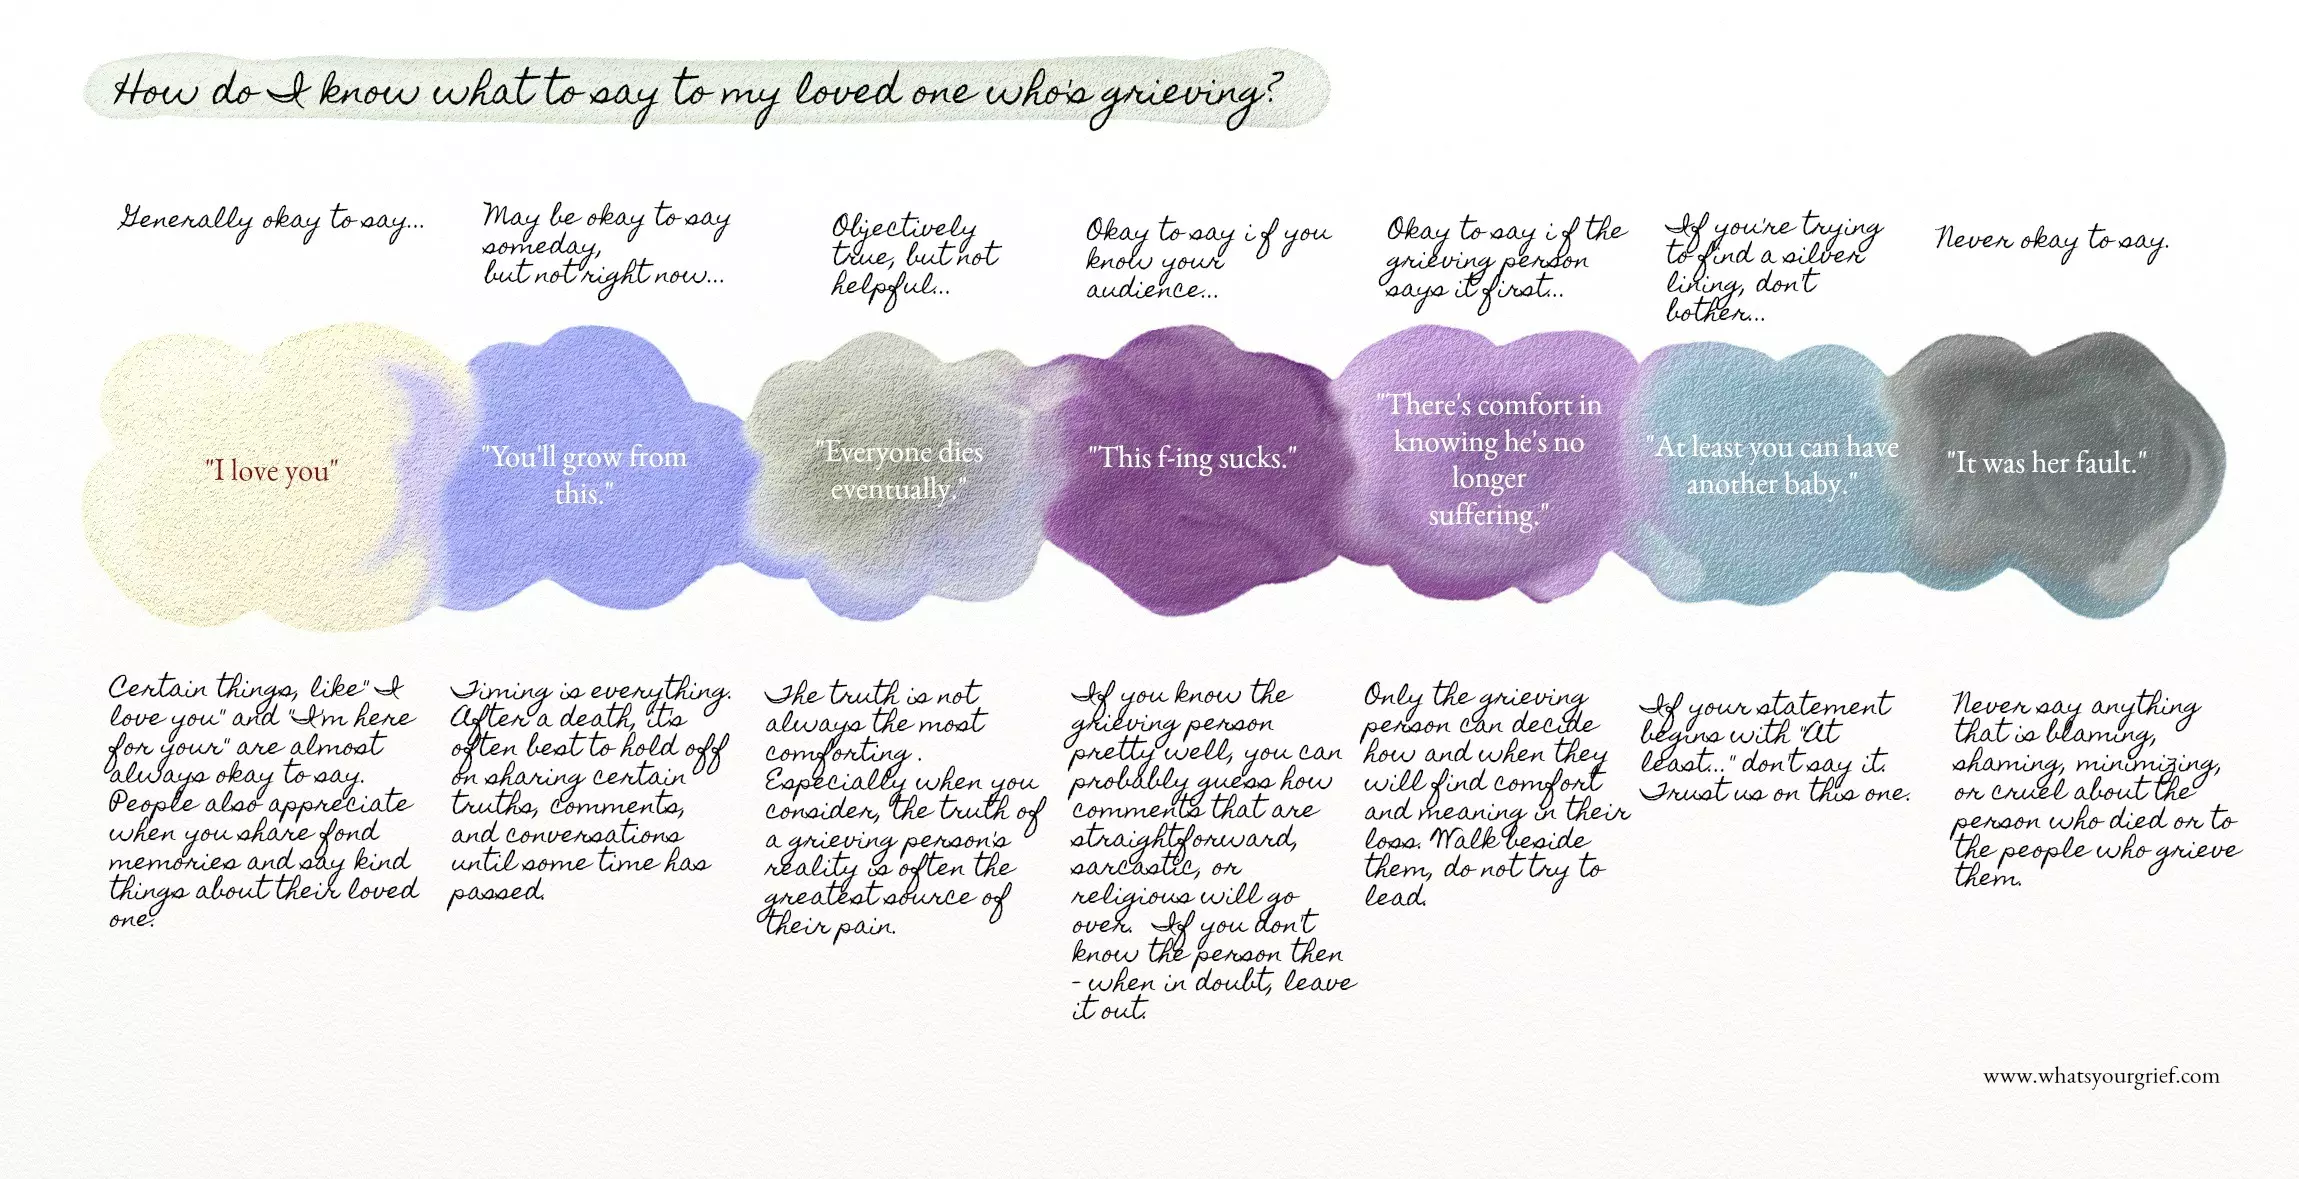 How do I know what to say to my loved one who's grieving?
Generally okay to say...
May be okay to say
someday,
but not right now...
Objectively
true, but not
helpful...
Okay to say if you
know your
audience...
Okay to say if the
grieving person
says it first...
If you're trying
to find a silver
lining, don't
bother...
Never okay to say.
"I love you"
"You'll grow from
this."
"Everyone dies
eventually."
"This f-ing sucks."
"There's comfort in
knowing he's no
longer
suffering."
"At least you can have
another baby."
"It was her fault."
Certain things, like" I
love you" and "I'm here
for your" are almost
always okay to say.
People also appreciate
when you share fond
memories and say kind
things about their loved
one.
Timing is everything.
After a death, it's
often best to hold off
on sharing certain
truths, comments,
and conversations
until some time has
passed.
The truth is not
always the most
comforting .
Especially when you
consider, the truth of
a grieving person's
reality is often the
greatest source of
their pain.
If you know the
grieving person
pretty well, you can
probably guess how
comments that are
straightforward,
sarcastic, or
religious will go
over. If you don't
know the person then
- when in doubt, leave
it out.
Only the grieving
person can decide
how and when they
will find comfort
and meaning in their
loss. Walk beside
them, do not try to
lead.
If your statement
begins with "At
least..." don't say it.
Trust us on this one.
Never say anything
that is blaming,
shaming, minimizing,
or cruel about the
person who died or to
the people who grieve
them.
www.whatsyourgrief.com